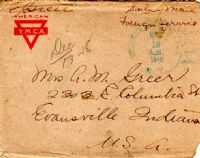 Greer
Sailor's Mail
Foreign Service
AMERICAN
Y.M.C.A.
Dec
13 18
Mrs A. M. Greer
E Columbia St
Evansville Indiana
U.S.A.